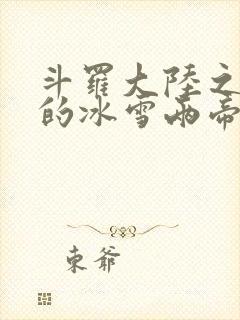 斗羅大陸之
的冰雪兩帝
東爺